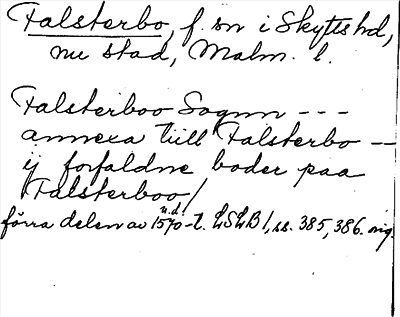 Falsterbo, f. sn i Skytts hd,
nu stad, Malm. l.
Falsterboo Sognn ---
annexa tiill Falsterbo --
ij forfaldne boder paa
Falsterboo/
n.d.
förra delen av 1570-t. LSLB 1, ss. 385, 386. orig.